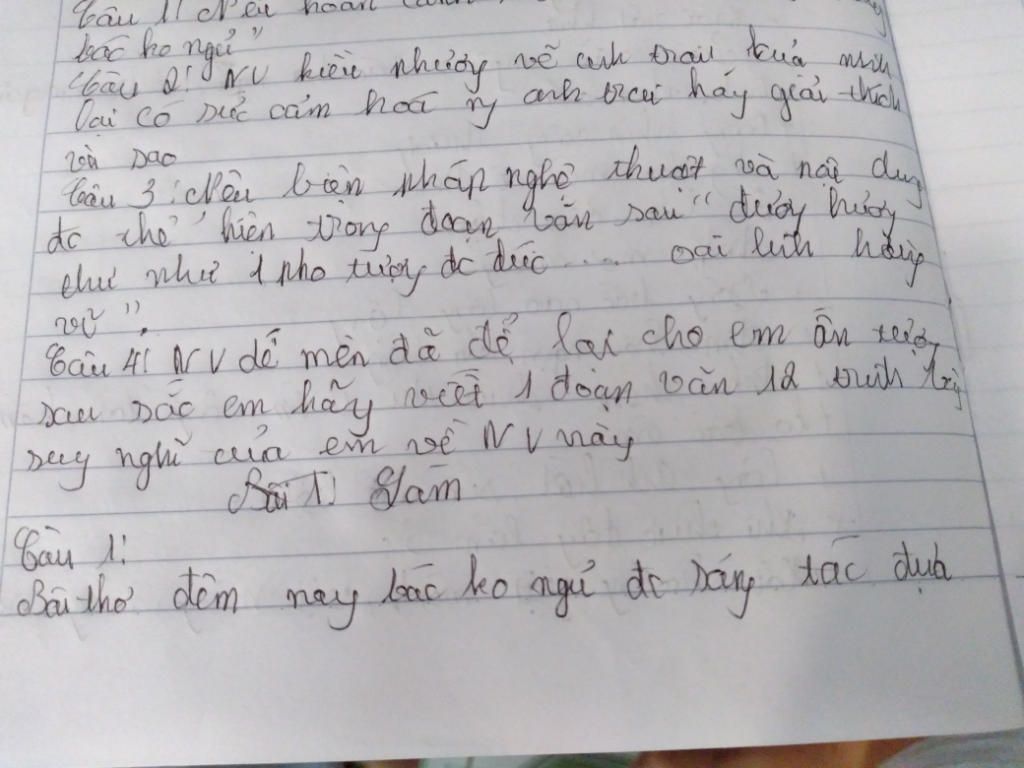 Câu 1! Nêu hoàn cảnh
bác ko ngủ"
Câu 2! NV kiều nhương về anh trai của mình
lại có sức cảm hoá ng anh trai hãy giải thích
vì sao
Câu 3: Nêu biện pháp nghệ thuật và nội dung
đc thể hiện trong đoạn văn sau " dượng hương
thư như 1 pho tượng đc đúc .... oai linh hùng
vĩ".
Câu 4! NV dế mèn đã để lại cho em ấn tượng
sau sắc em hãy viết 1 đoạn văn 12 trình bày
suy nghĩ của em về NV này
Bài Làm
Câu 1:
Bài thơ đêm nay bác ko ngủ đc sáng tác dựa